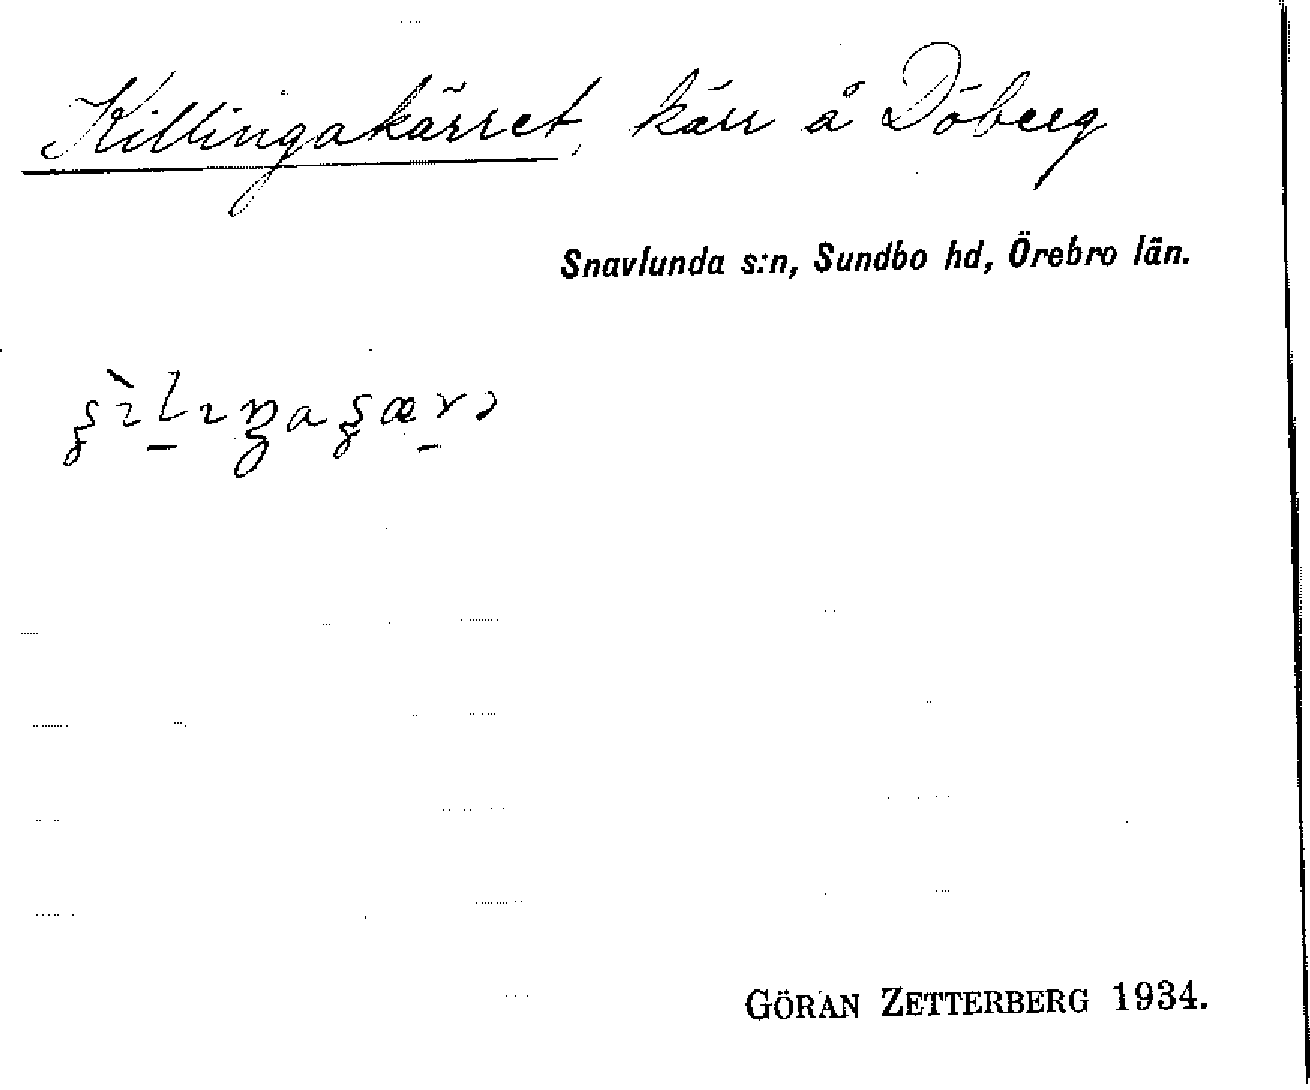 Killingakärret, kärr å Döberg
Snavlunda s:n, Sundbo hd, Örebro län.
GÖRAN ZETTERBERG 1934.